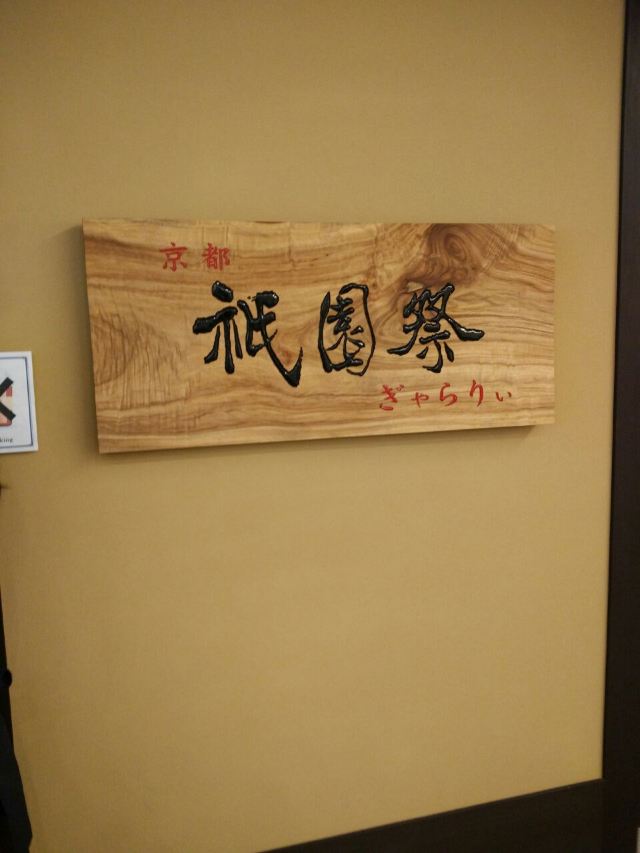 京都
祇園祭
ぎゃらりぃ
king